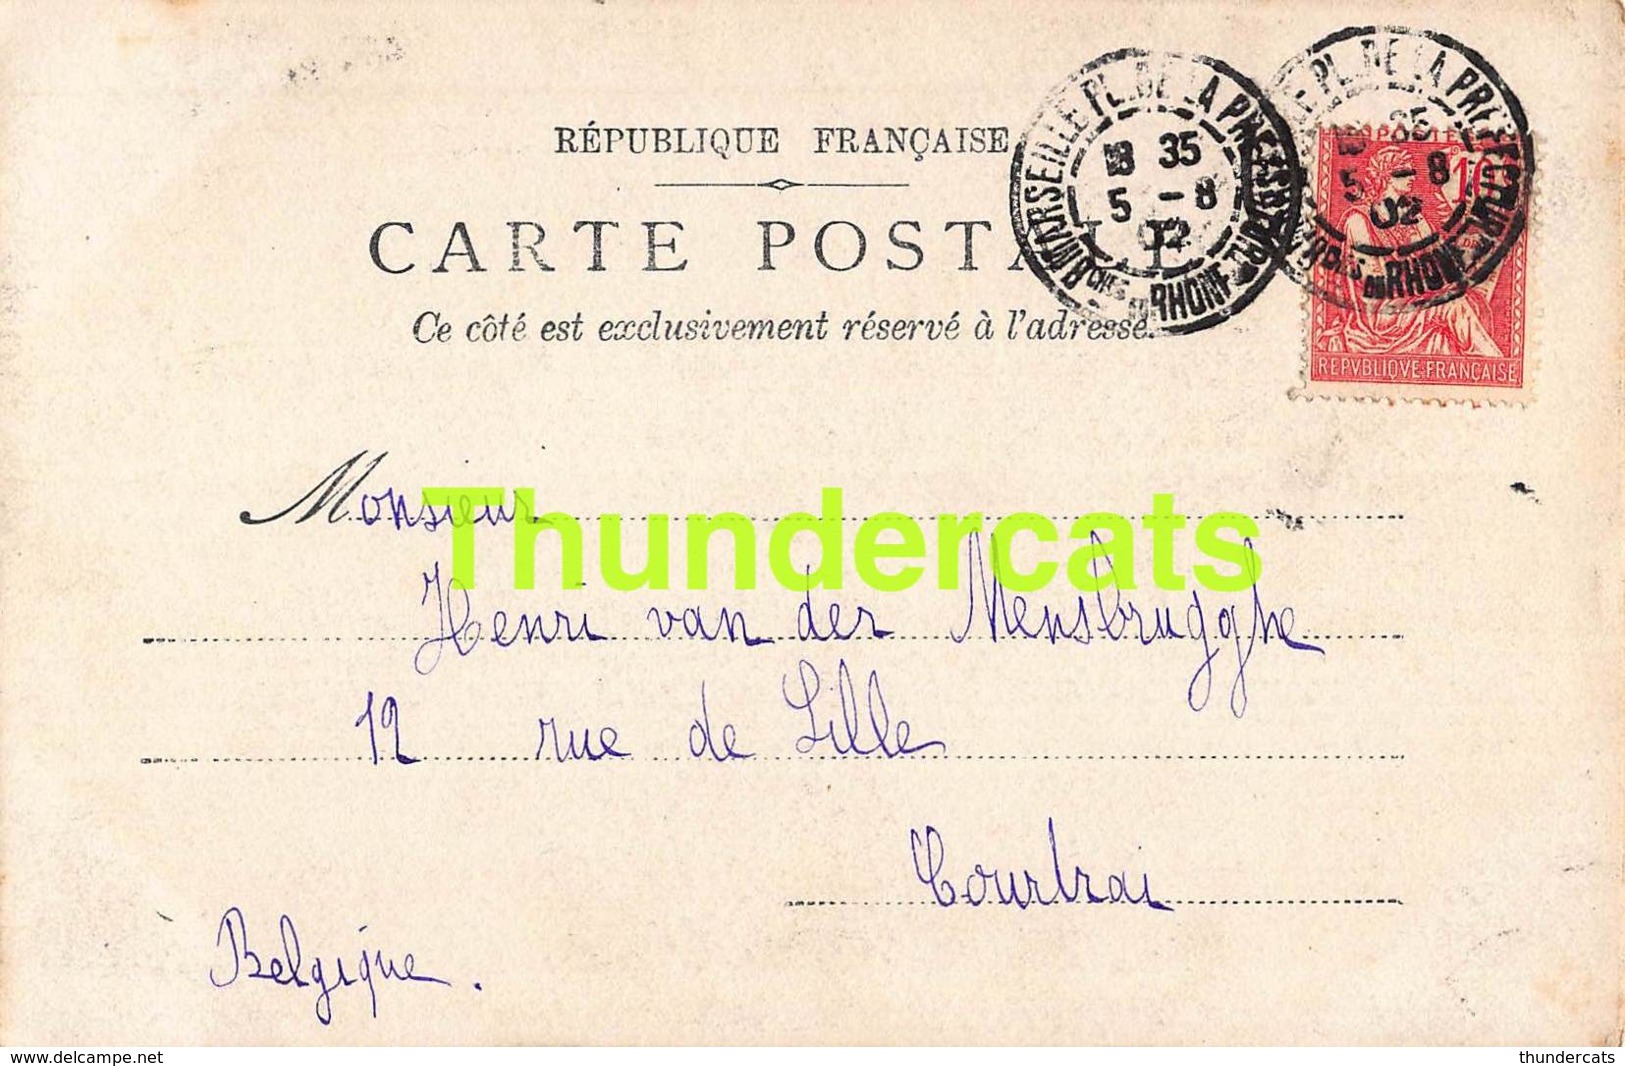 RÉPUBLIQUE FRANÇAISE
CARTE POSTALE
Ce côté est exclusivement réservé à l'adresse.
MARSEILLE PL. DE LA PRÉFECTURE
18 35
5 - 8
02
BCHES DU RHONE
PL. DE LA PRÉFECTURE
18 35
5 - 8
02
DU RHONE
POSTES
10
REPVBLIQVE FRANÇAISE
Monsieur
Thundercats
Henri van der Mensbrugghe
12 rue de Lille
Courtrai
Belgique.
www.delcampe.net
thundercats